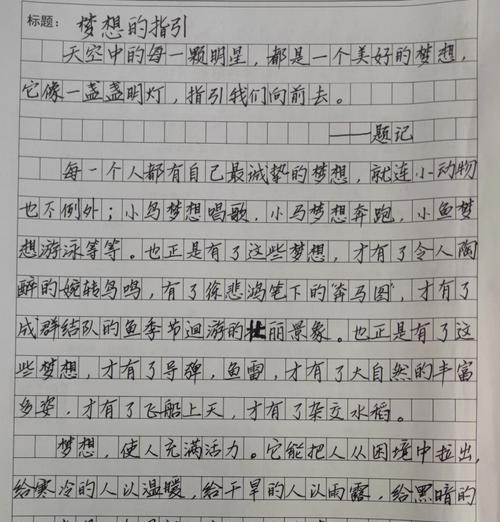 标题：梦想的指引
天空中的每一颗明星，都是一个美好的梦想，
它像一盏盏明灯，指引我们向前去。
——题记
每一个人都有自己最诚挚的梦想，就连小动物
也不例外；小鸟梦想唱歌，小马梦想奔跑，小鱼梦
想游泳等等。也正是有了这些梦想，才有了令人陶
醉的婉转鸟鸣，有了徐悲鸿笔下的“奔马图”，才有了
成群结队的鱼季节迴游的壮丽景象。也正是有了这
些梦想，才有了导弹，鱼雷，才有了大自然的丰富
多姿，才有了飞船上天，才有了杂交水稻。
梦想，使人充满活力。它能把人从困境中拉出，
给寒冷的人以温暖，给干旱的人以雨露，给黑暗的